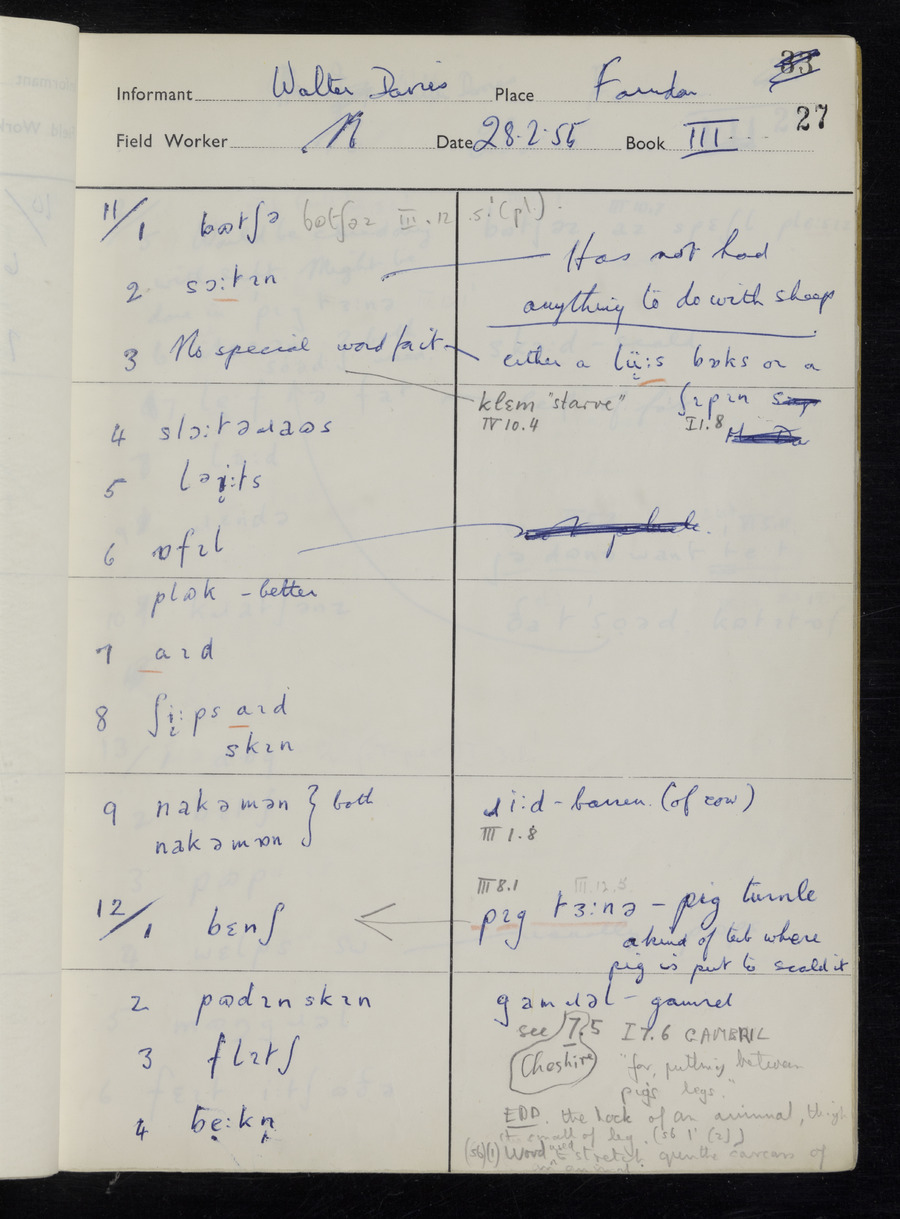 33
27
Informant Walter Davies Place Farndon
Field Worker Date 28.2.55 Book III
11/1 bɷtʃə bɷtʃəɹ III.12 s.(pl)
2 sɔ:tɪn — Has not had
anything to do with sheep
3 No special word for it — either a lü:s bɒks or a
klɛm "starve" ʃɪpɪn
IV 10.4 I 1.8
4 slɔ:təɹaɷs
5 ləɪ:ts
6 ɒfɪl
plɷk - better
7 aɪd
8 ʃi:ps aɪd
skɪn
9 nakəmən } both
nakəmɒn
ɹi:d - barren (of cow)
III 1.8
III 8.1 III.12.5
12/1 bɛnʃ
pɪg tɜ:nə - pig turnle
a kind of tub where
pig is put to scald it
2 pɷdɪn skɪn
gamɹəl - gamrel
see 7.5 I 7.6 GAMBRIL
Cheshire
"for putting between
pig's legs."
3 flɪtʃ
EDD. the hock of an animal, thigh
small of leg. (sb 1 (2))
4 be:kn̩
(sb)(1) Wood used to stretch open the carcass of
animal.